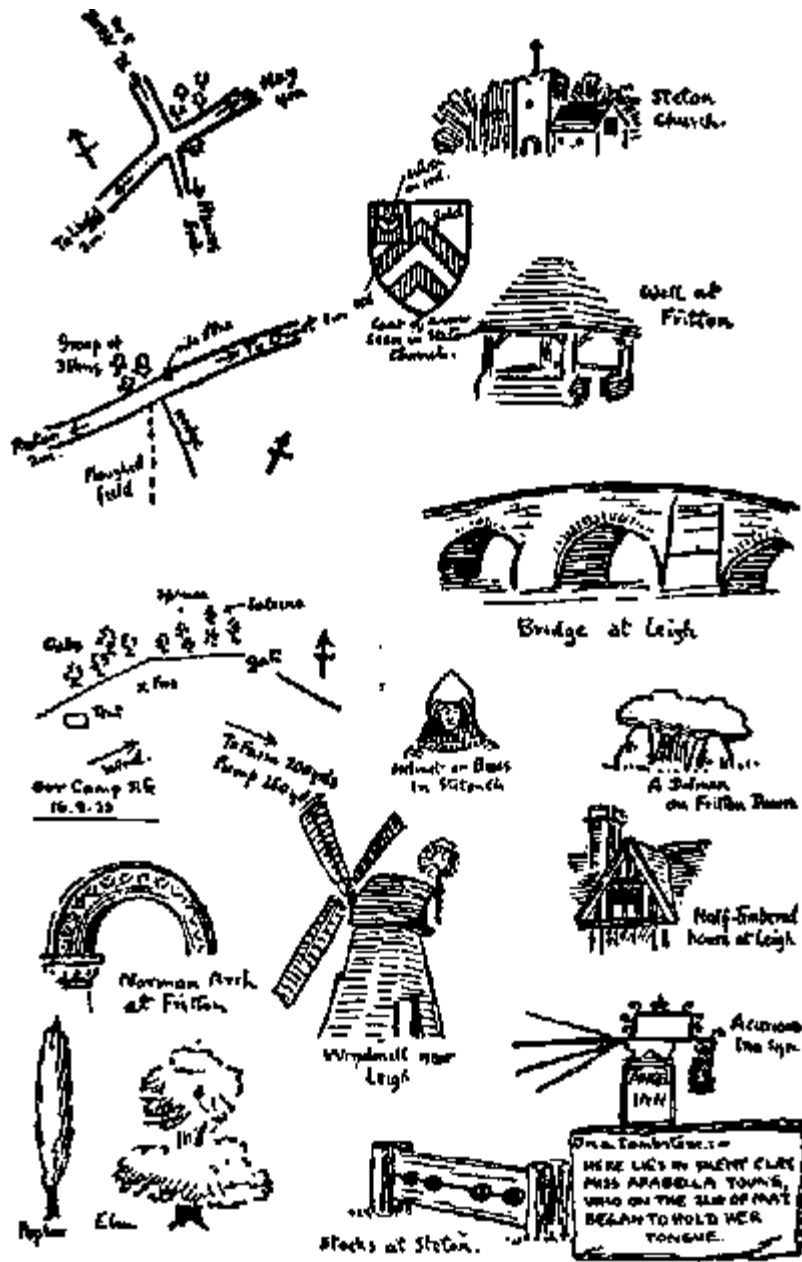 Hay
4m.
Steton
Church.
To Leigh
2m.
White
on red.
Gold
red
Coat of Arms
seen in Steton
Church.
Well at
Fritton
Group of
3 Elms
Ploughed
field
2m.
Bridge at Leigh
Spruce
Oaks
Gate
x Fire
Tent
Wind.
Our Camp
To Farm 200 yds
Pump 260 yds
Helmet on Brass
in
A Dolmen
on Fritton Down
Half-Timbered
house at Leigh
Norman Arch
at Fritton
Windmill near
Leigh
A curious
Inn sign.
ANGEL
INN
Poplar
Elm
Stocks at Steton.
On a Tombstone:—
HERE LIES IN SILENT CLAY
MISS ARABELLA YOUNG,
WHO ON THE 21st OF MAY
BEGAN TO HOLD HER
TONGUE.